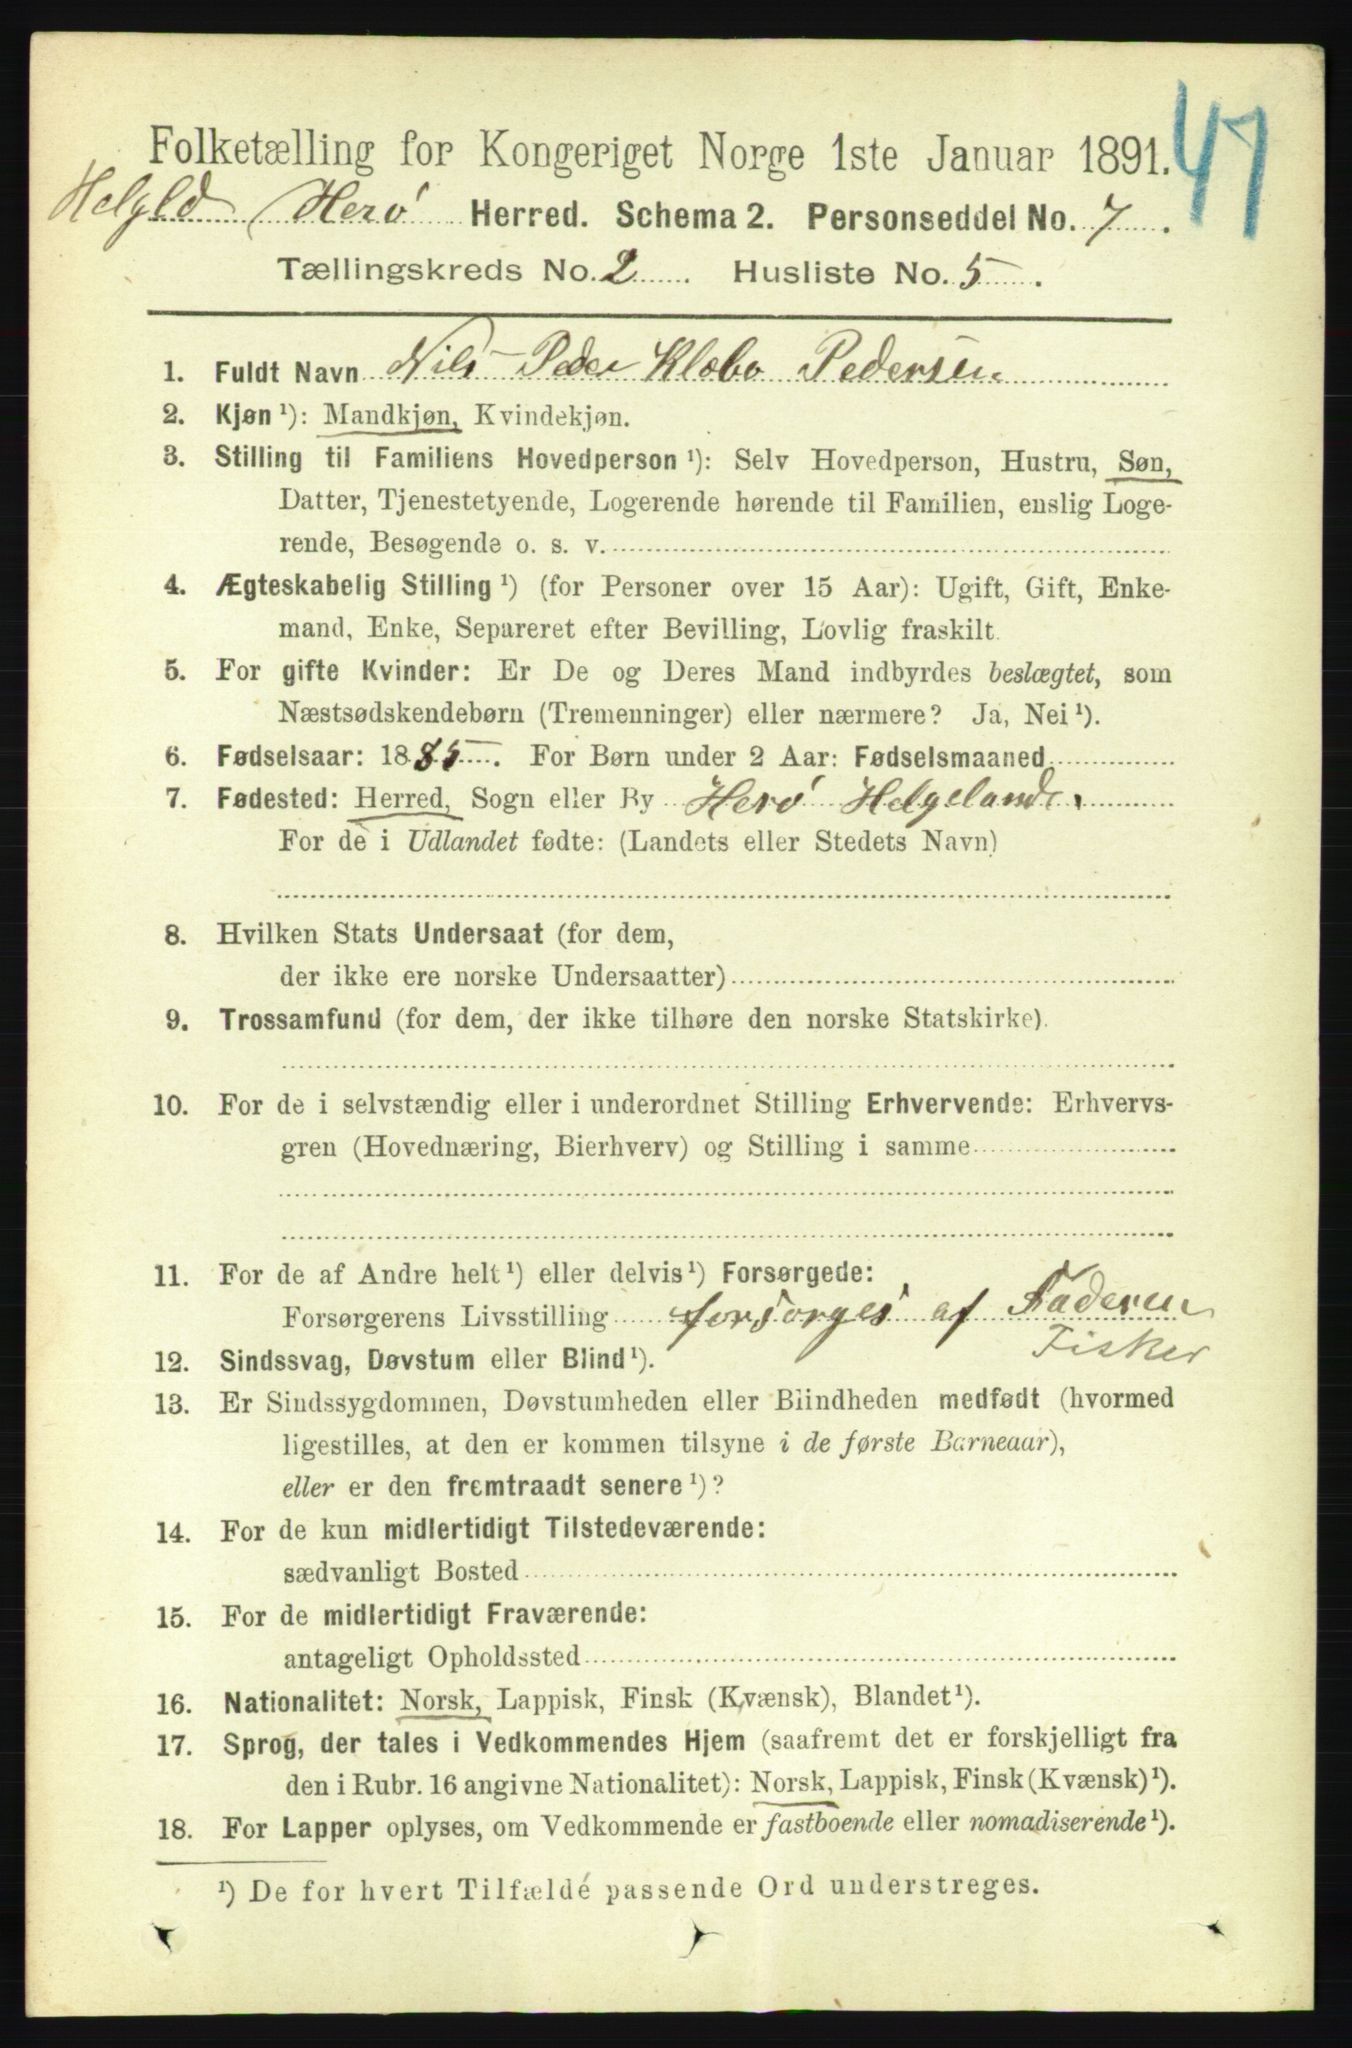 47
Folketælling for Kongeriget Norge 1ste Januar 1891.
Helgld Herö Herred. Schema 2. Personseddel No. 7.
Tællingskreds No. 2 Husliste No. 5.
1. Fuldt Navn Nils Peder Klæbo Pedersen
2. Kjøn ¹): Mandkjøn, Kvindekjøn.
3. Stilling til Familiens Hovedperson ¹): Selv Hovedperson, Hustru, Søn,
Datter, Tjenestetyende, Logerende hørende til Familien, enslig Loge-
rende, Besøgende o. s. v.
4. Ægteskabelig Stilling ¹) (for Personer over 15 Aar): Ugift, Gift, Enke-
mand, Enke, Separeret efter Bevilling, Lovlig fraskilt.
5. For gifte Kvinder: Er De og Deres Mand indbyrdes beslægtet, som
Næstsødskendebørn (Tremenninger) eller nærmere? Ja, Nei ¹).
6. Fødselsaar: 1885. For Børn under 2 Aar: Fødselsmaaned
7. Fødested: Herred, Sogn eller By Herö Helgeland.
For de i Udlandet fødte: (Landets eller Stedets Navn)
8. Hvilken Stats Undersaat (for dem,
der ikke ere norske Undersaatter)
9. Trossamfund (for dem, der ikke tilhøre den norske Statskirke).
10. For de i selvstændig eller i underordnet Stilling Erhvervende: Erhvervs-
gren (Hovednæring, Bierhverv) og Stilling i samme
11. For de af Andre helt ¹) eller delvis ¹) Forsørgede:
Forsørgerens Livsstilling forsorges af Faderen
Fisker
12. Sindssvag, Døvstum eller Blind ¹).
13. Er Sindssygdommen, Døvstumheden eller Blindheden medfødt (hvormed
ligestilles, at den er kommen tilsyne i de første Barneaar),
eller er den fremtraadt senere ¹)?
14. For de kun midlertidigt Tilstedeværende:
sædvanligt Bosted
15. For de midlertidigt Fraværende:
antageligt Opholdssted
16. Nationalitet: Norsk, Lappisk, Finsk (Kvænsk), Blandet ¹).
17. Sprog, der tales i Vedkommendes Hjem (saafremt det er forskjelligt fra
den i Rubr. 16 angivne Nationalitet): Norsk, Lappisk, Finsk (Kvænsk) ¹).
18. For Lapper oplyses, om Vedkommende er fastboende eller nomadiserende ¹).
¹) De for hvert Tilfælde passende Ord understreges.